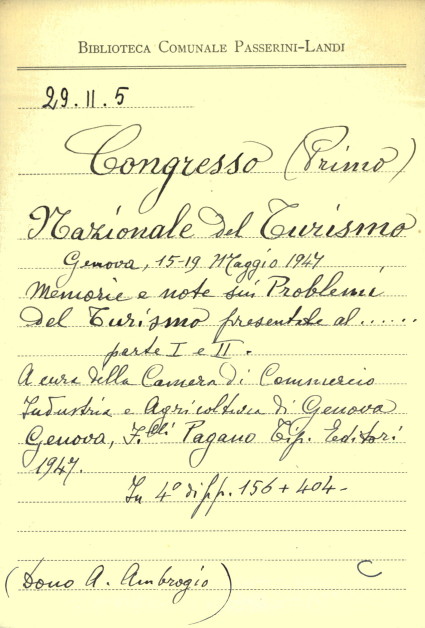 BIBLIOTECA COMUNALE PASSERINI-LANDI
29.II.5
Congresso (Primo)
Nazionale del Turismo
Genova, 15-19 Maggio 1947
Memorie e note sui Problemi
del Turismo presentate al ......
parte I e II.
A cura della Camera di Commercio
Industria e Agricoltura di Genova
Genova, F.lli Pagano Tip. Editori
1947.
In 4° di pp. 156 + 404 -
(Dono A. Ambrogio)
C